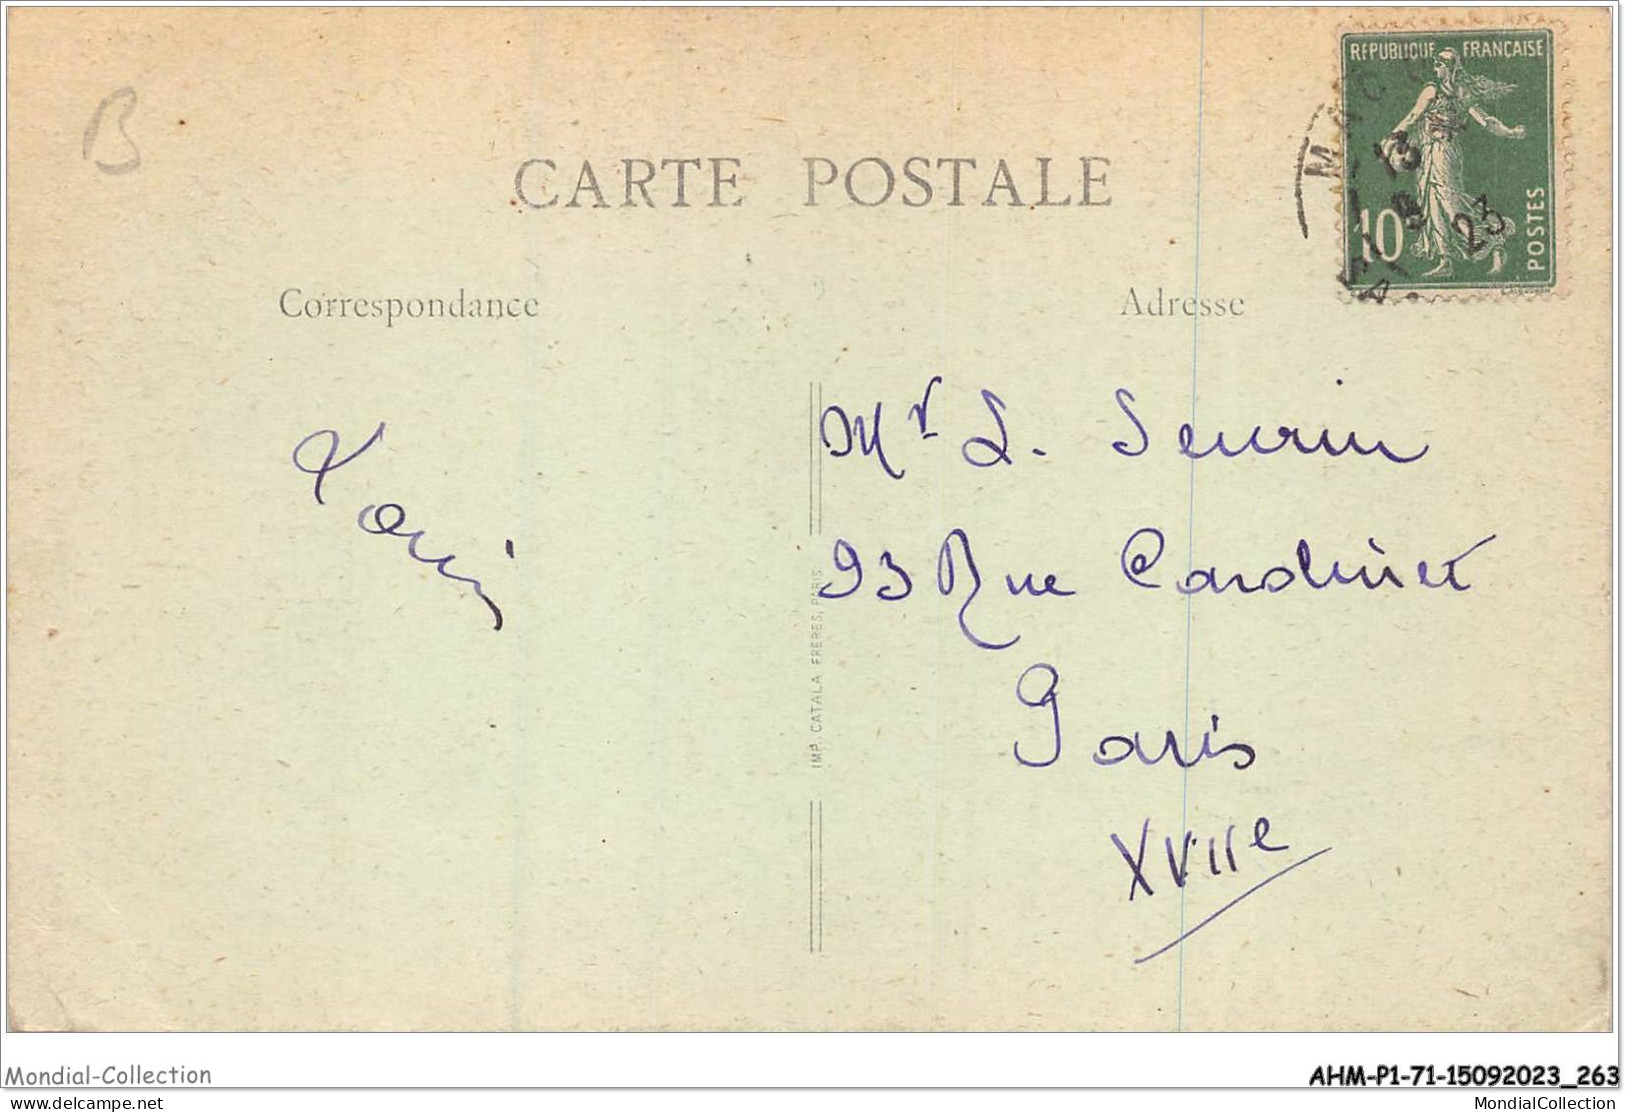 B
RÉPUBLIQUE FRANÇAISE
10
POSTES
13
8
23
CARTE POSTALE
Correspondance
Adresse
Mr L. Seurin
93 Rue Cardinet
Paris
XVIIe
IMP. CATALA FRERES, PARIS
Mondial-Collection
AHM-P1-71-15092023_263
delcampe.net
MondialCollection